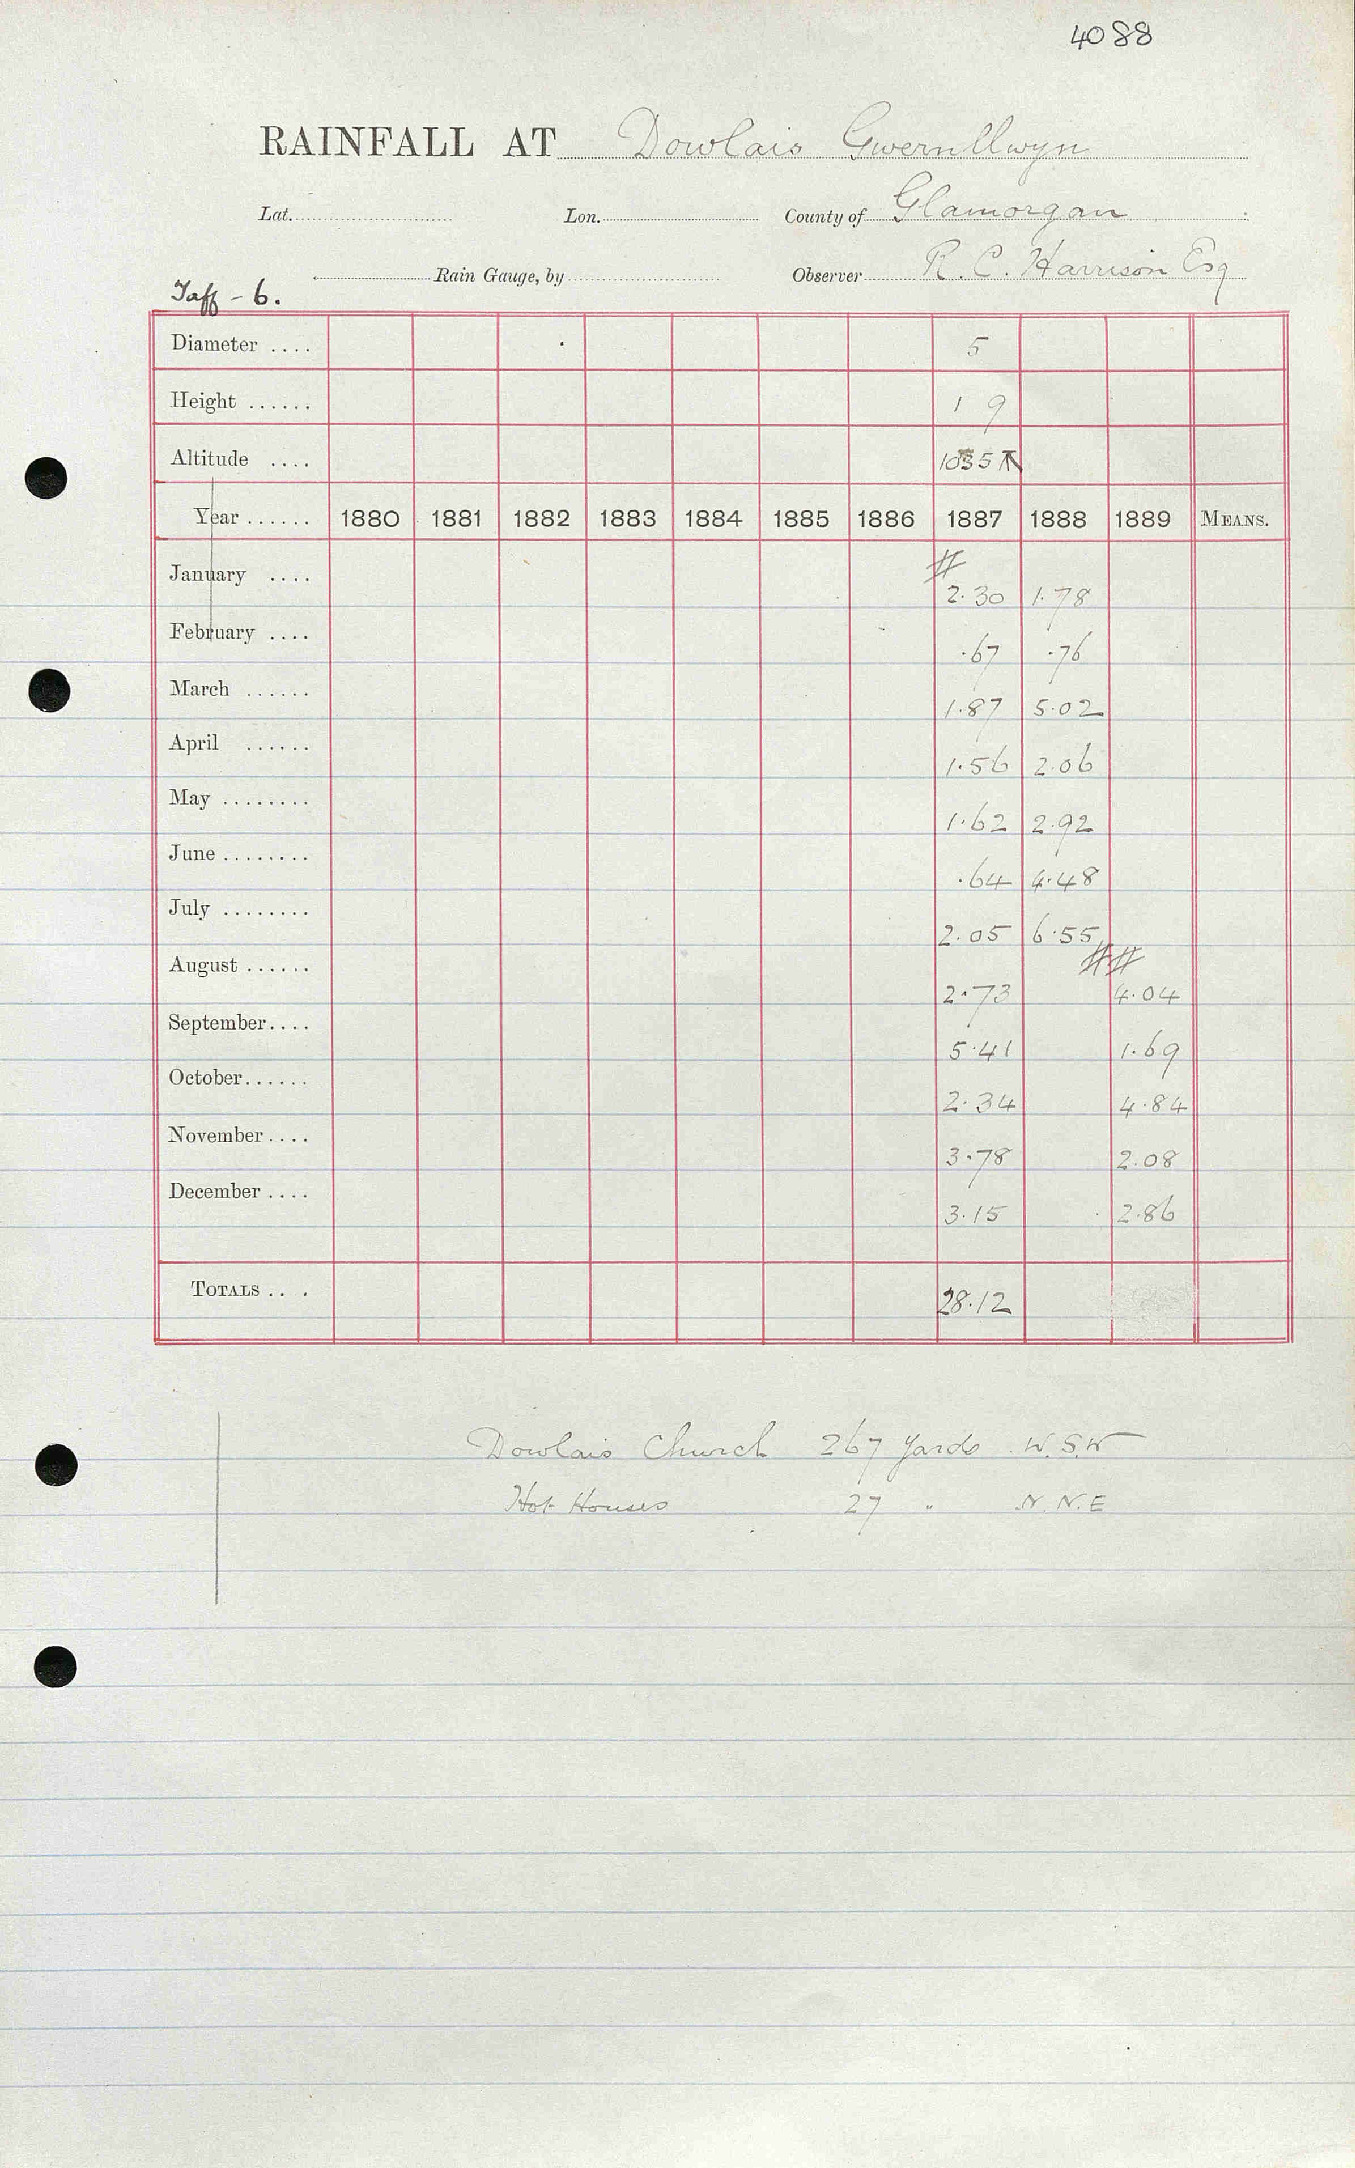 4088
RAINFALL AT Dowlais Gwernllwyn
Lat. Lon. County of Glamorgan
Rain Gauge, by Observer R. C. Harrison Esq
Taff - 6.
Diameter .... 5
Height ...... 1 9
Altitude .... 1035
Year ...... 1880 1881 1882 1883 1884 1885 1886 1887 1888 1889 MEANS.
January .... # 2.30 1.78
February .... .67 .76
March ...... 1.87 5.02
April ...... 1.56 2.06
May ........ 1.62 2.92
June ........ .64 4.48
July ........ 2.05 6.55
August ...... 2.73 ## 4.04
September.... 5.41 1.69
October...... 2.34 4.84
November.... 3.78 2.08
December.... 3.15 2.86
TOTALS .. . 28.12
Dowlais Church 267 Yards W.S.W
Hot Houses 27 " N.N.E